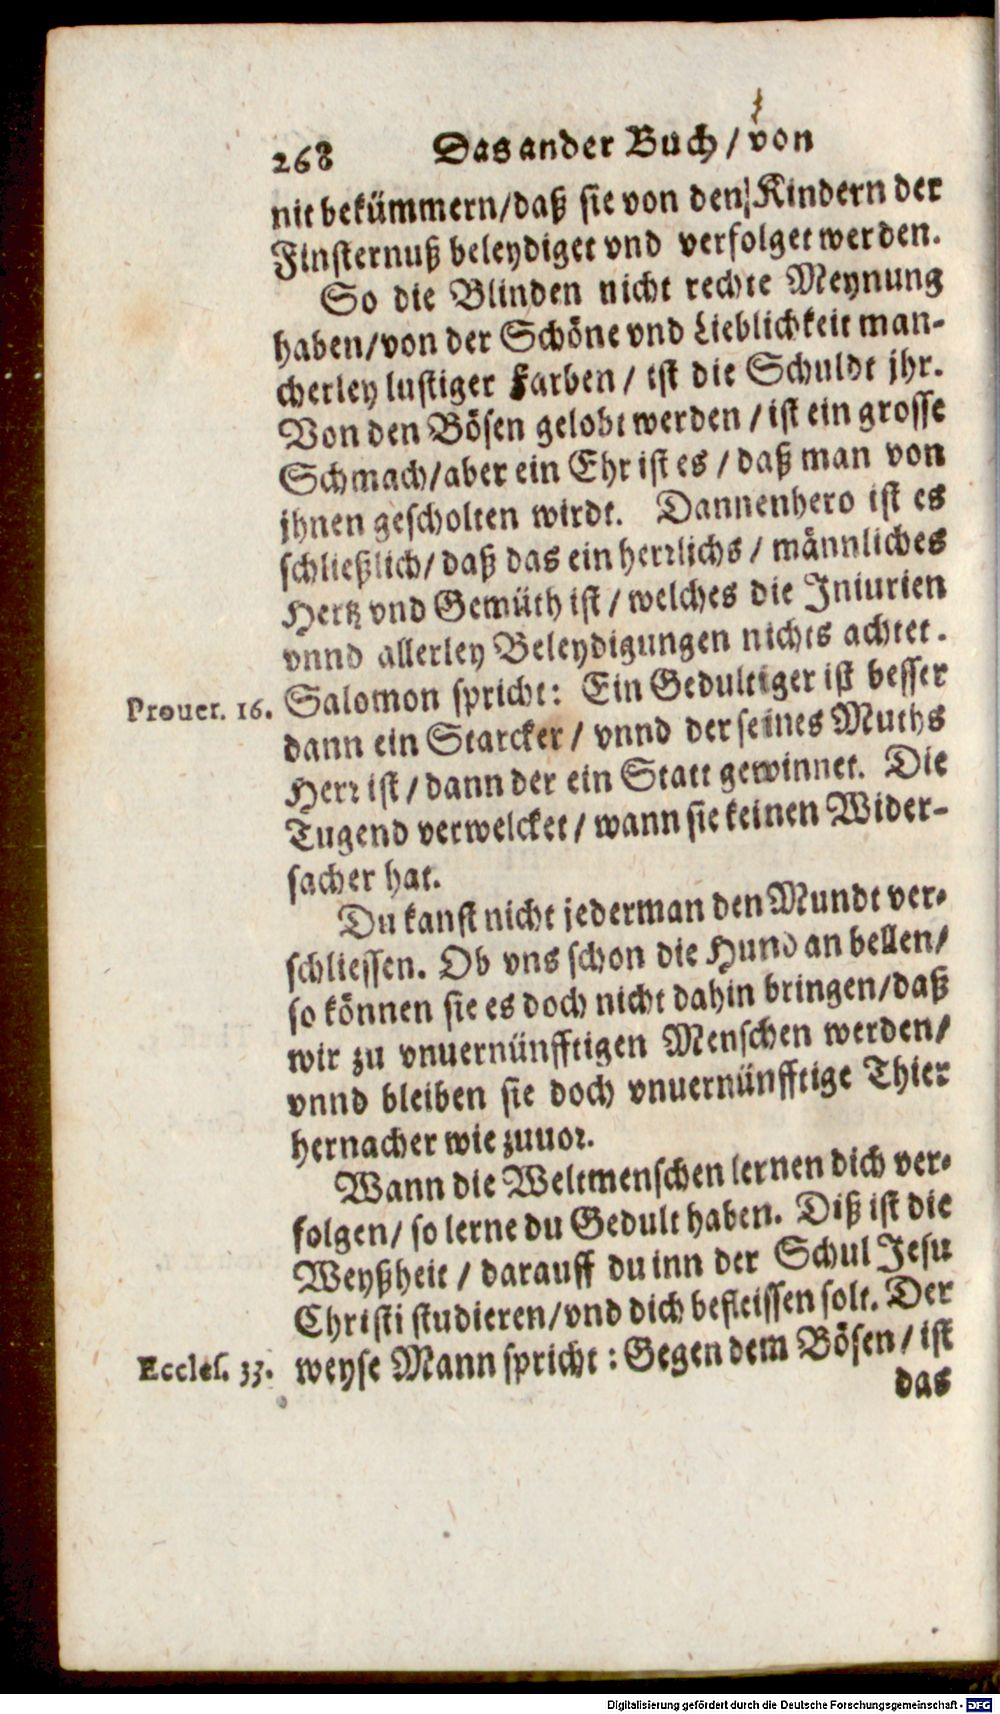 268 Das ander Buch / von
nit bekümmern/daß sie von den Kindern der
Finsternuß beleydiget vnd verfolget werden.
So die Blinden nicht rechte Meynung
haben/von der Schöne vnd Lieblichkeit man-
cherley lustiger Farben / ist die Schuldt jhr.
Von den Bösen gelobt werden / ist ein grosse
Schmach/aber ein Ehr ist es / daß man von
jhnen gescholten wirdt. Dannenhero ist es
schließlich/ daß das ein herrlichs / männliches
Hertz vnd Gemüth ist / welches die Iniurien
vnnd allerley Beleydigungen nichts achtet.
Prouer. 16. Salomon spricht: Ein Gedultiger ist besser
dann ein Starcker / vnnd der seines Muths
Herr ist / dann der ein Statt gewinnet. Die
Tugend verwelcket / wann sie keinen Wider-
sacher hat.
Du kanst nicht jederman den Mundt ver-
schliessen. Ob vns schon die Hund an bellen/
so können sie es doch nicht dahin bringen/daß
wir zu vnuernünfftigen Menschen werden/
vnnd bleiben sie doch vnuernünfftige Thier
hernacher wie zuuor.
Wann die Weltmenschen lernen dich ver-
folgen/ so lerne du Gedult haben. Diß ist die
Weyßheit / darauff du inn der Schul Jesu
Christi studieren/vnd dich befleissen solt. Der
Eccles. 33. weyse Mann spricht : Gegen dem Bösen / ist
das
Digitalisierung gefördert durch die Deutsche Forschungsgemeinschaft - DFG